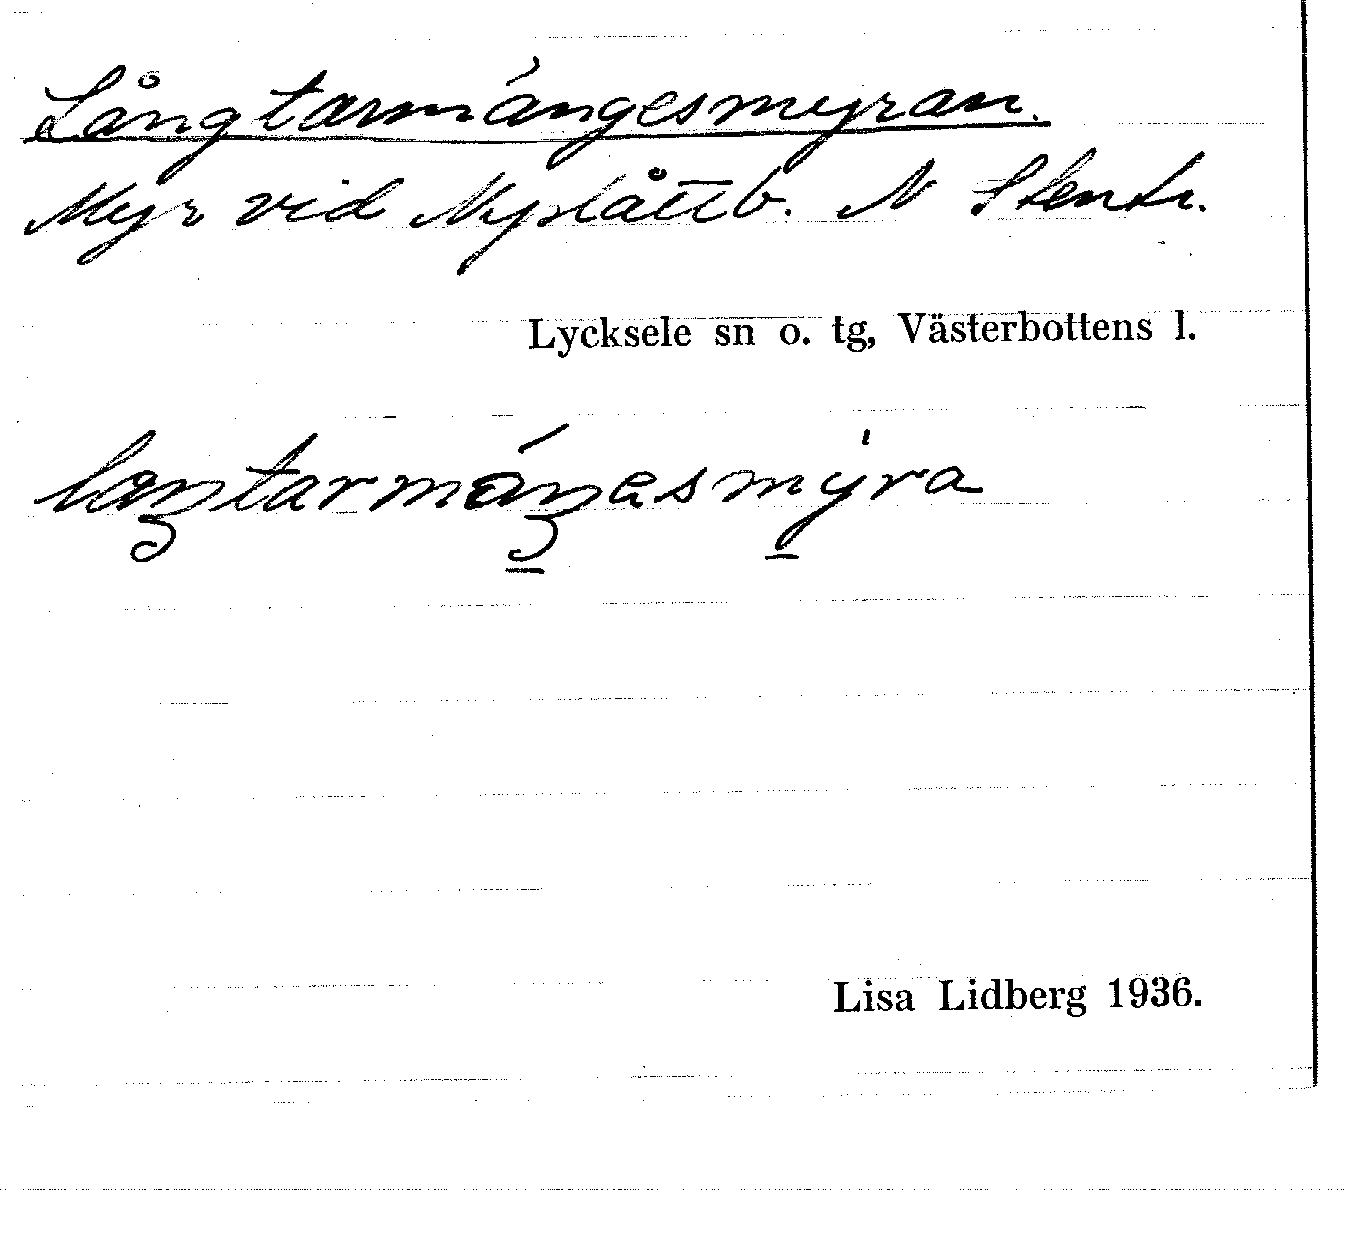 Långtarmángesmyran.
Myr vid Nyslåttb. N Stentr.
Lycksele sn o. tg, Västerbottens l.
laŋtarmáŋesmy̍ra
Lisa Lidberg 1936.